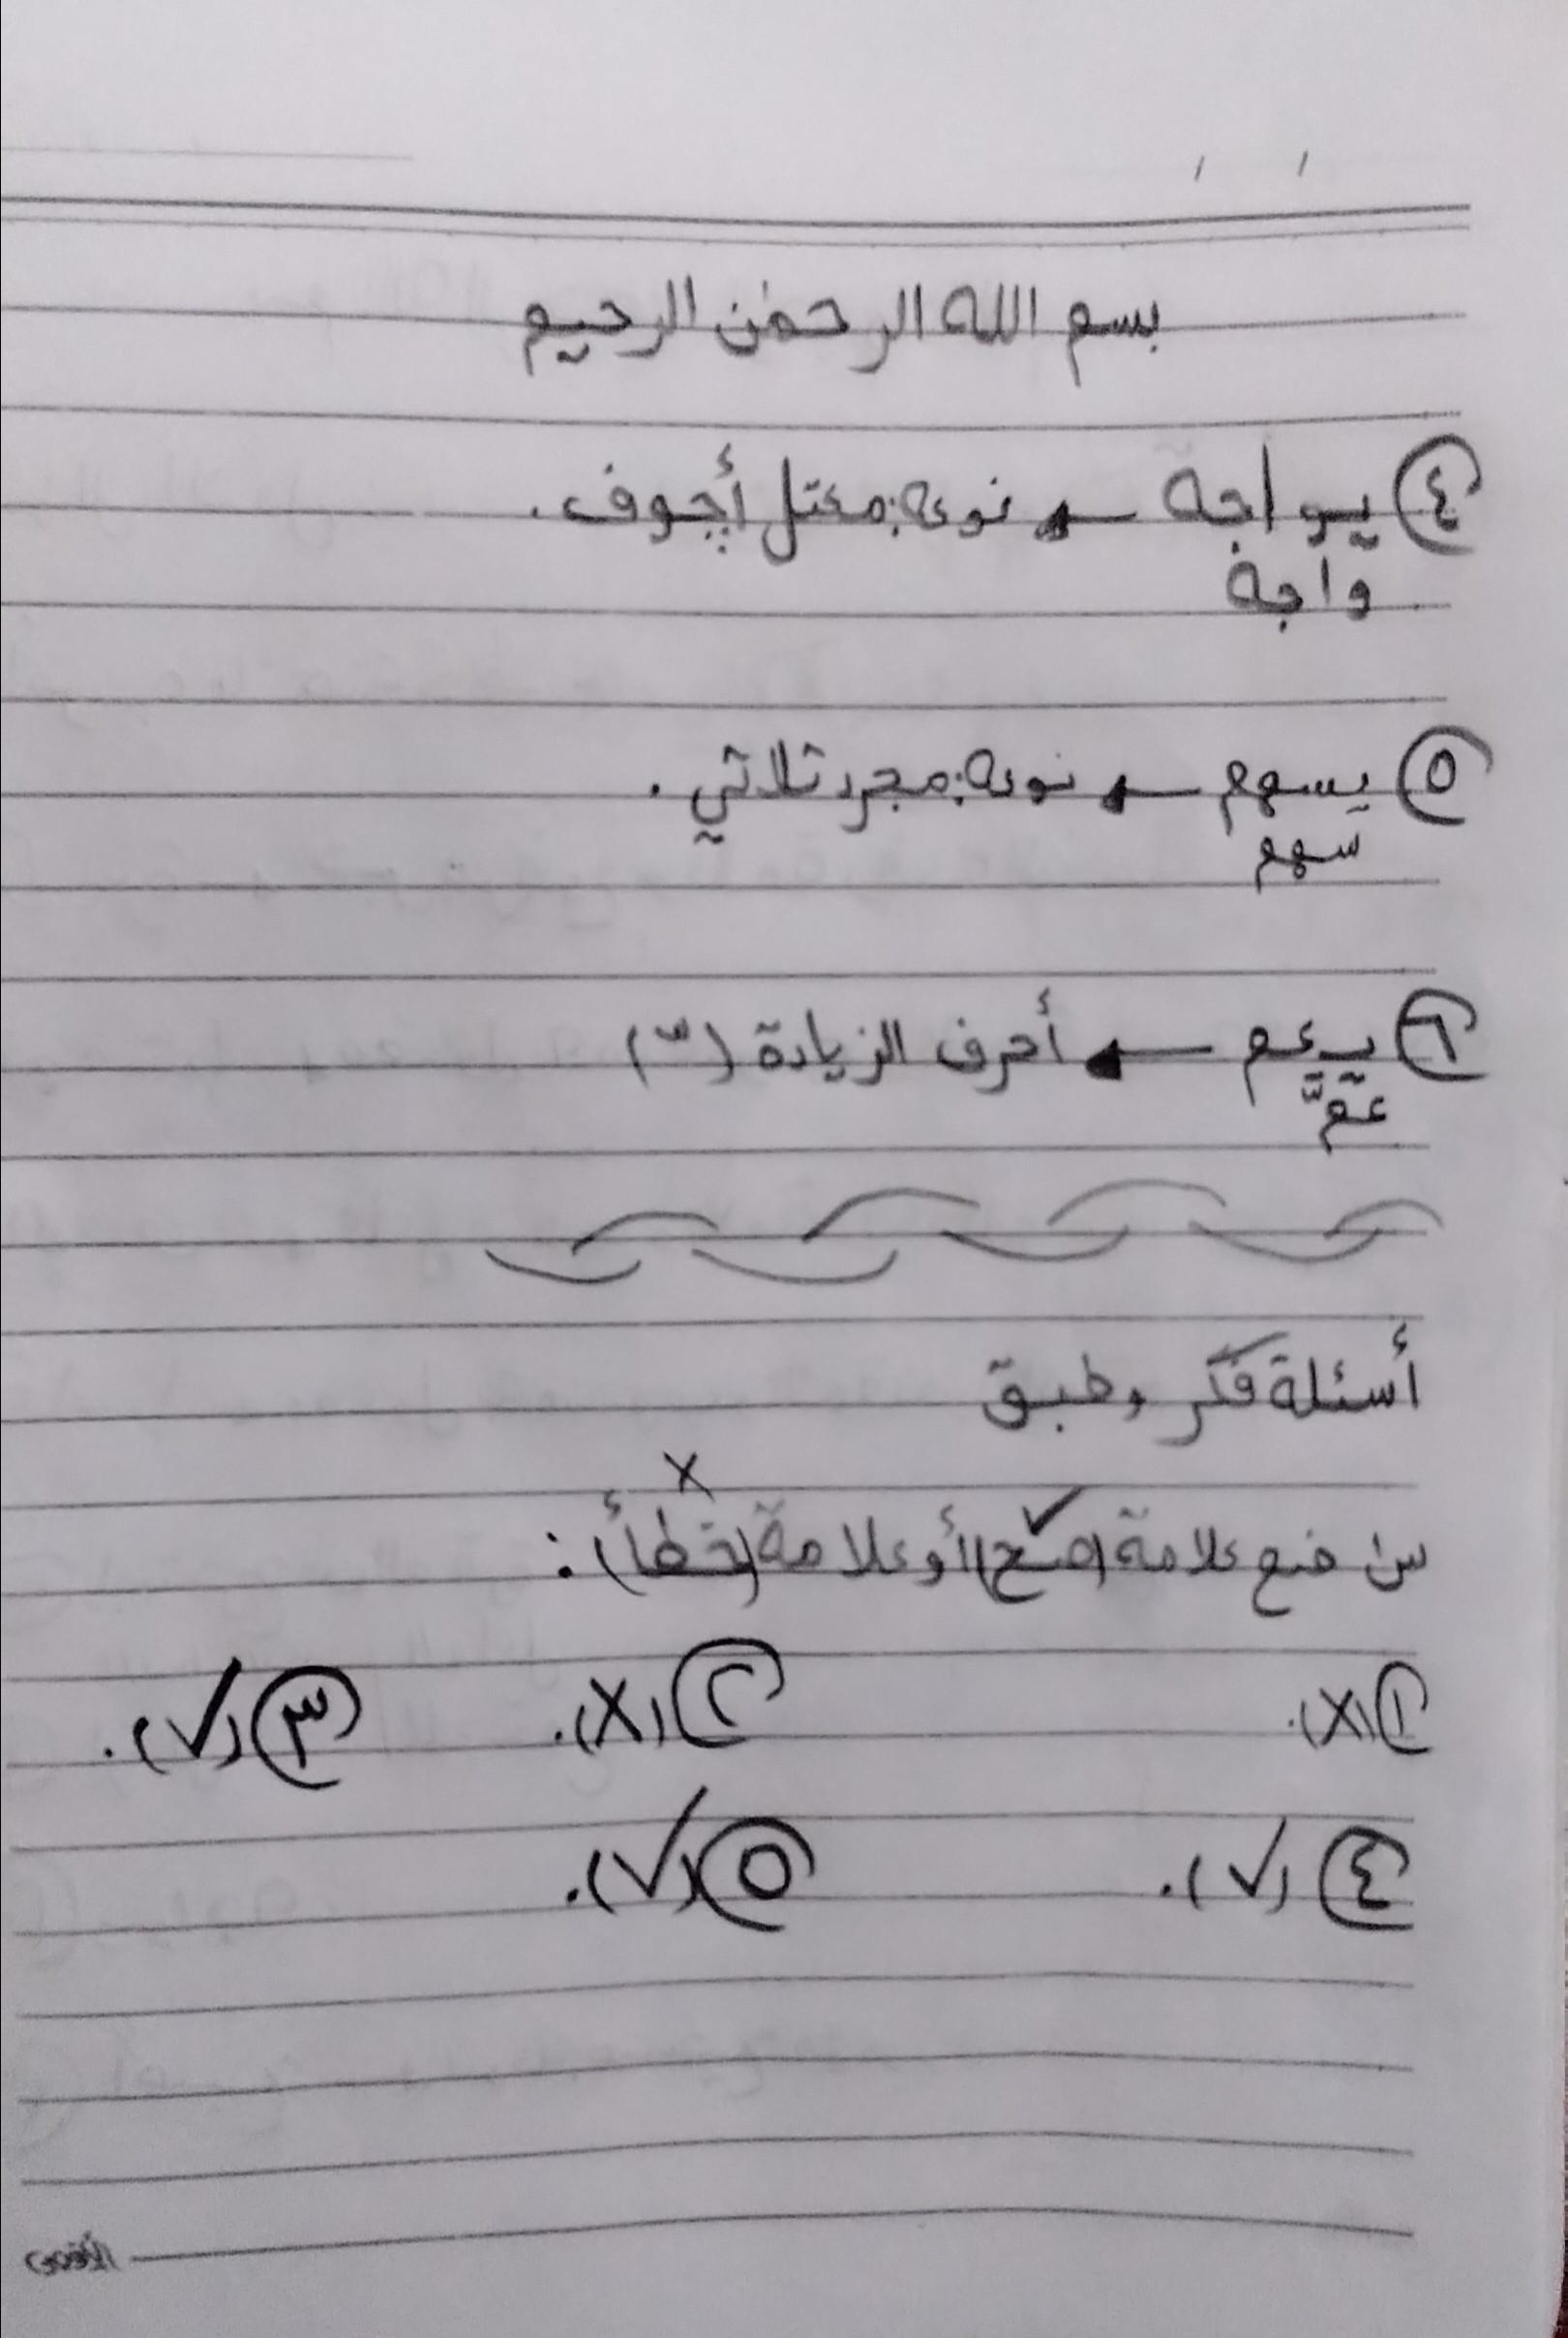 بسم الله الرحمٰن الرحيم
٤ يواجة ← نوعه: معتل أجوف.
واجة
٥ يسهم ← نوعة: مجرد ثلاثي.
سهم
٦ يعم ← أحرف الزيادة (ّ)
عمَّ
أسئلة فكر وطبق
س١ ضع علامة (صح) أو علامة (خطأ):
✓ X
١ (X). ٢ (X). ٣ (✓).
٤ (✓). ٥ (✓).